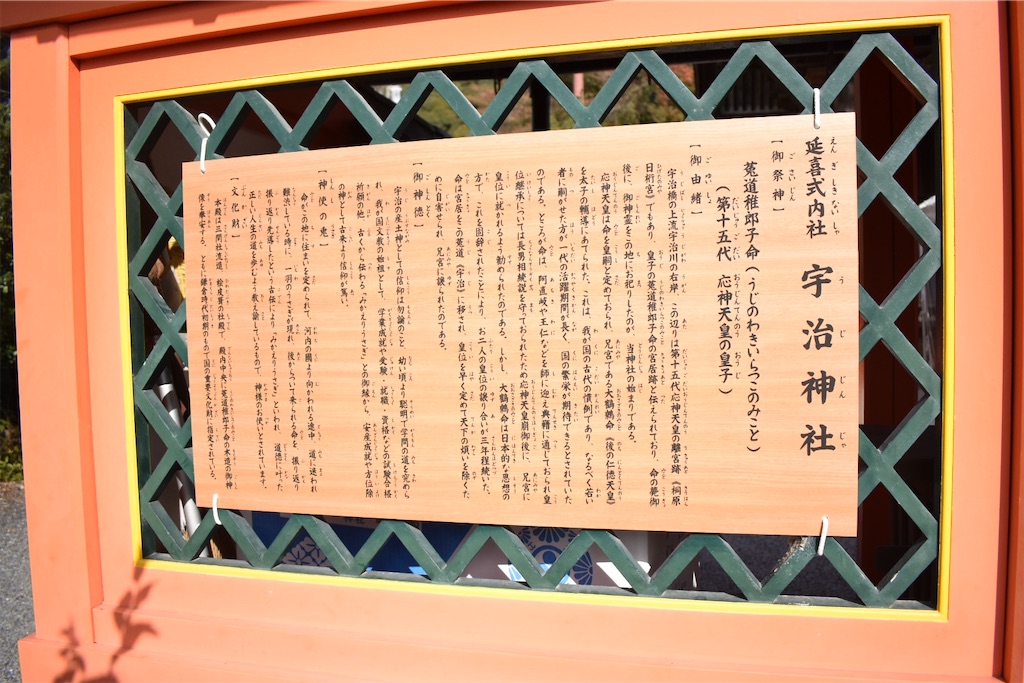 延喜式内社 宇治神社
えんぎしきないしゃ うじじんじゃ
【御祭神】
ごさいじん
菟道稚郎子命(うじのわきいらつこのみこと)
(第十五代 応神天皇の皇子)
だいじゅうごだい おうじんてんのうのおうじ
【御由緒】
ごゆいしょ
宇治橋の上流宇治川の右岸、この辺りは第十五代応神天皇の離宮跡(桐原
日桁宮)でもあり、皇子の菟道稚郎子命の宮居跡と伝えられており、命の薨御
後に、御神霊をこの地にお祀りしたのが、当神社の始まりである。
応神天皇は命を皇嗣と定めておられ、兄宮である大鷦鷯命《後の仁徳天皇》
を太子の輔導にあてられた。これは、我が国の古代の慣例であり、なるべく若い
者に嗣がせた方が一代の活躍期間が長く、国の繁栄が期待できるとされていた
のである。ところが命は、阿直岐や王仁などを師に迎え典籍に通じておられ皇
位継承については長男相続説を守っておられたため応神天皇崩御後に、兄宮に
皇位に就かれるよう勧められたのである。しかし、大鷦鷯命は日本的な思想の
方で、これを固辞されたことにより、お二人の皇位の譲り合いが三年程続いた。
命は宮居をこの菟道(宇治)に移され、皇位を早く定めて天下の煩いを除くた
めに自害せられ、兄宮に譲られたのである。
【御神徳】
ごしんとく
宇治の産土神としての信仰は勿論のこと、幼い頃より聡明で学問の道を究めら
れ、我が国文教の始祖として、学業成就や受験・就職・資格などの試験合格
祈願の他、古くから伝わる「みかえりうさぎ」との御縁から、安産成就や方位除
の神として古来より信仰が篤い。
【神使の兎】
命がこの地に住まいを定められて、河内の國より向かわれる途中、道に迷われ
難渋している時に、一羽のうさぎが現れ、後からついて来られる命を、振り返り
振り返り先導したという古伝により「みかえりうさぎ」といわれ、道徳に叶った
正しい人生の道を歩むよう教え諭しているもので、神様のお使いとされています。
【文化財】
ぶんかざい
本殿は三間社流造、桧皮葺の社殿で、殿内中央に菟道稚郎子命の木造の御神
像を奉安する。ともに鎌倉時代初期のもので国の重要文化財に指定されている。
神社